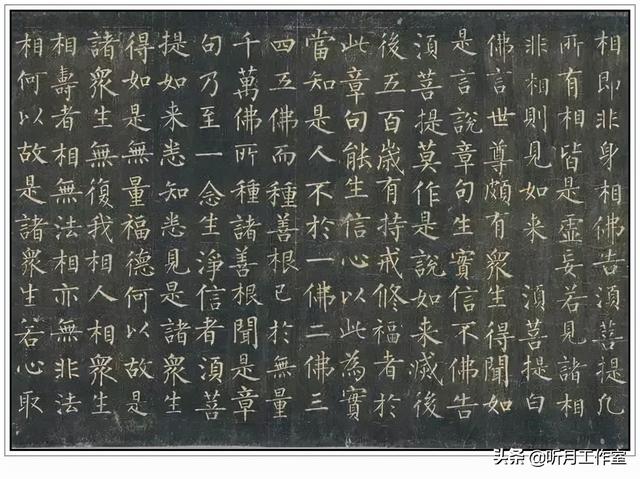 相即非身相佛告須菩提凡
所有相皆是虛妄若見諸相
非相則見如来　須菩提白
佛言世尊頗有衆生得聞如
是言說章句生實信不佛告
須菩提莫作是說如来滅後
後五百歲有持戒修福者於
此章句能生信心以此為實
當知是人不於一佛二佛三
四五佛而種善根已於無量
千萬佛所種諸善根聞是章
句乃至一念生淨信者須菩
提如来悉知悉見是諸衆生
得如是無量福德何以故是
諸衆生無復我相人相衆生
相壽者相無法相亦無非法
相何以故是諸衆生若心取
头条 @听月工作室